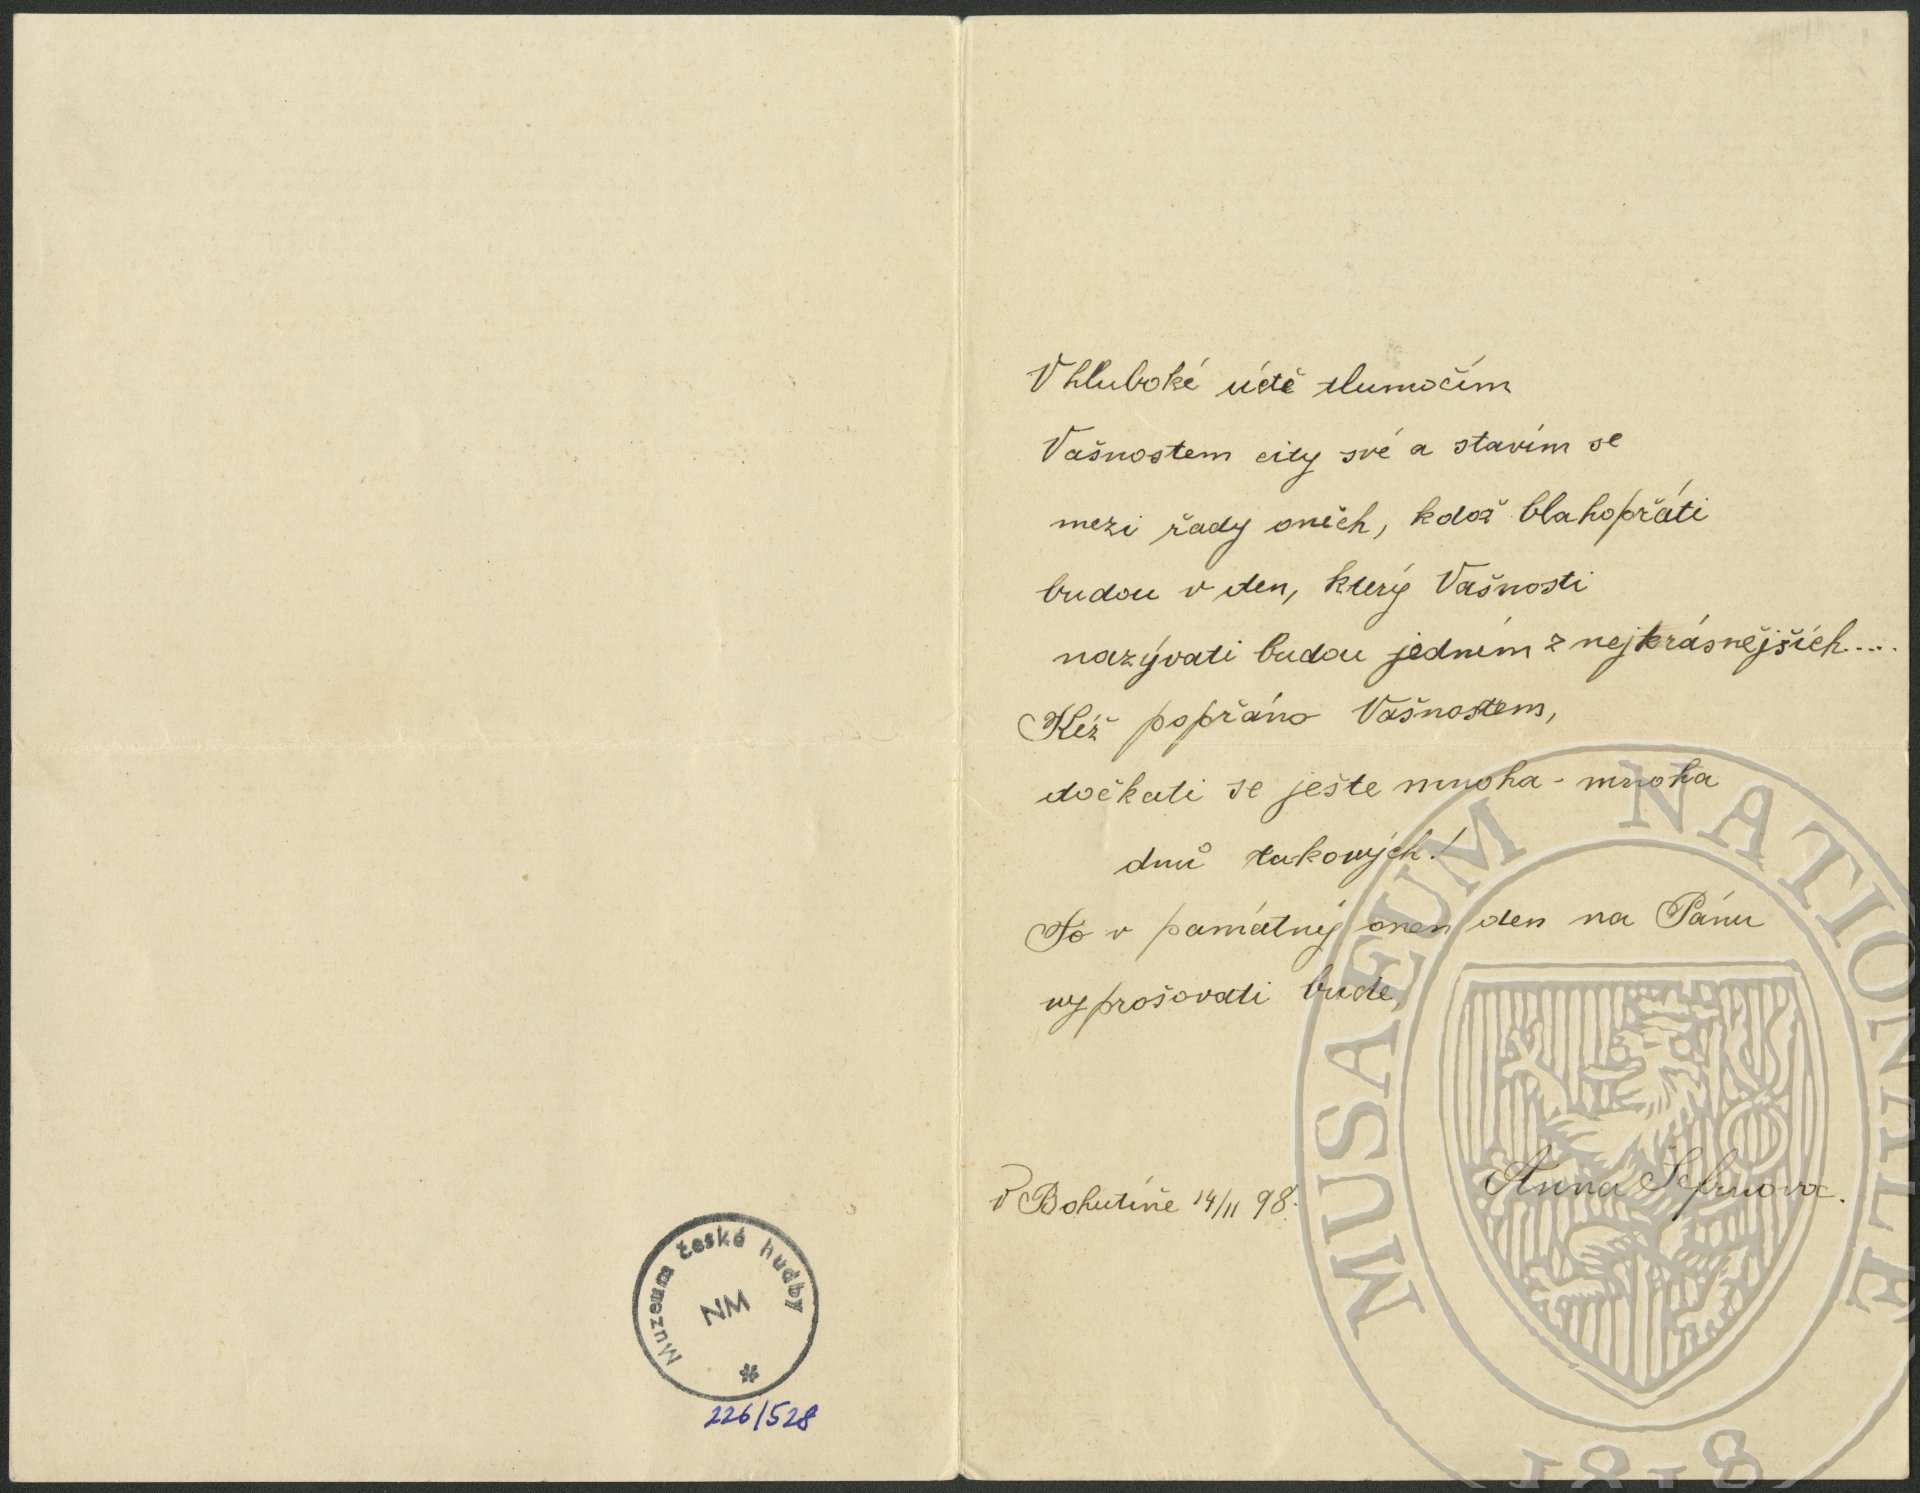 Muzeum české hudby
NM
226/528
V hluboké úctě tlumočím
Vašnostem city své a stavím se
mezi řady oněch, kdož blahopřáti
budou v den, který Vašnosti
nazývati budou jedním z nejkrásnějších....
Kéž popřáno Vašnostem,
dočkati se ještě mnoha - mnoha
dnů takových!
To v památný onen den na Pánu
vyprošovati bude,
Anna Šefrnova.
V Bohutíně 14/II 98.
MUSAEUM NATIONALE
1818